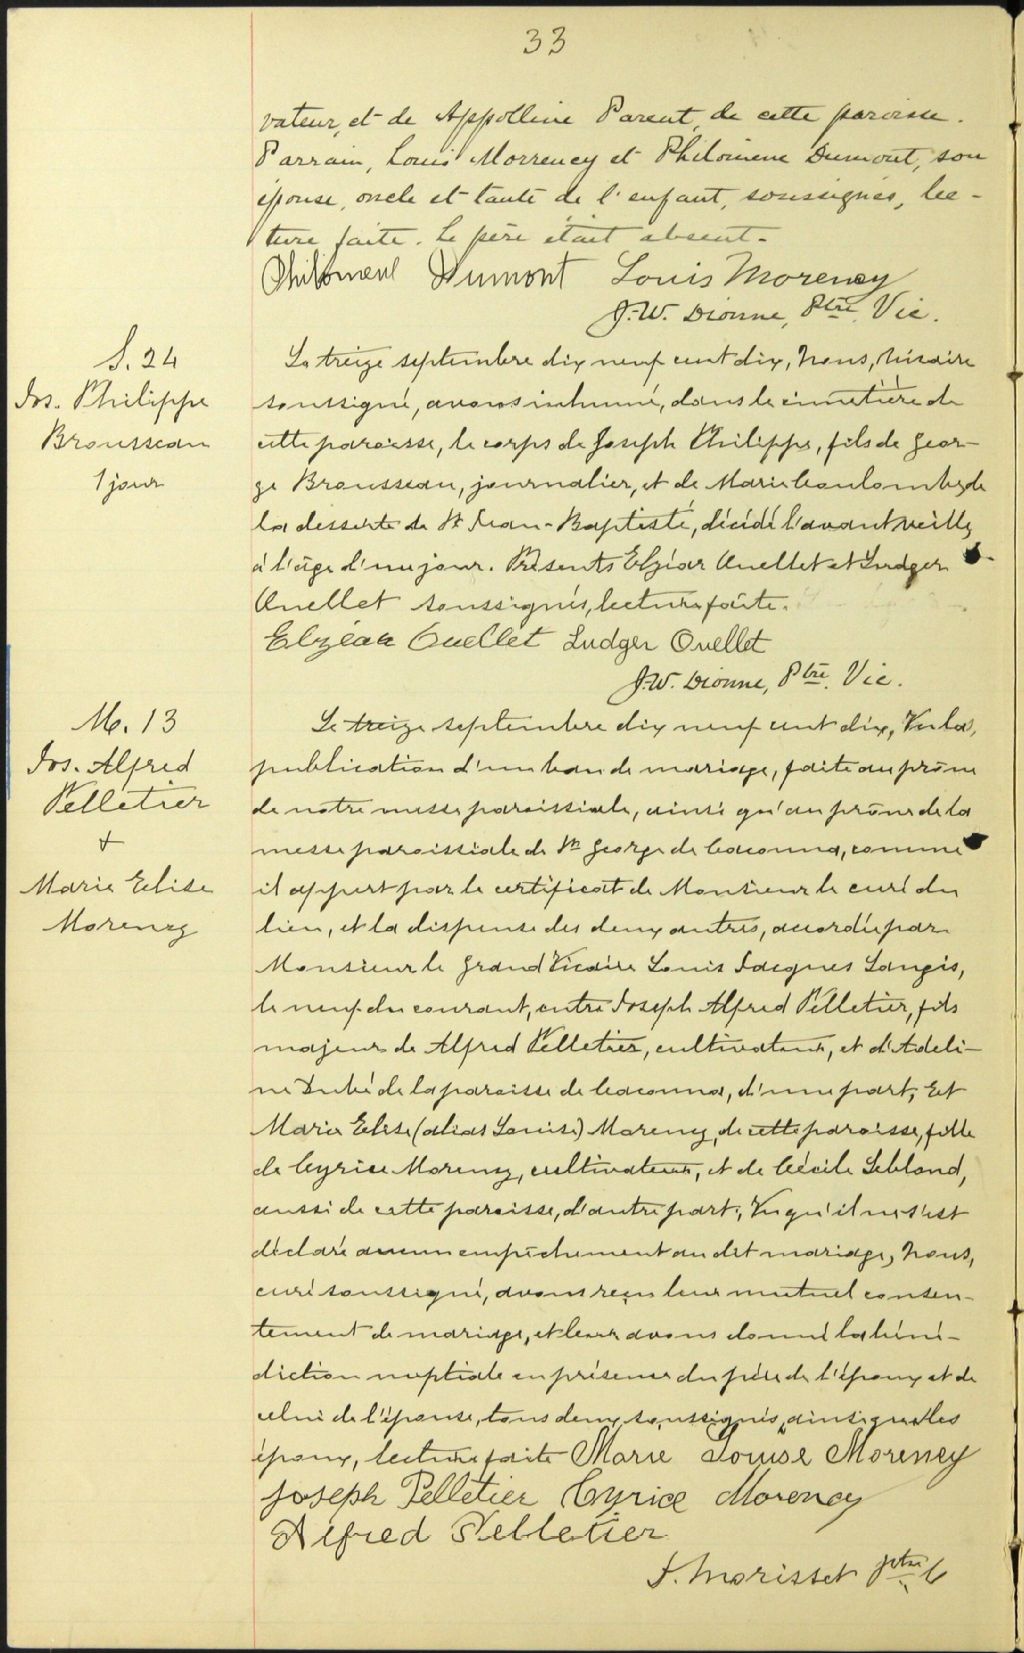 33
vateur, et de Appolline Parent, de cette paroisse.
Parrain, Louis Morrency et Philomène Dumont, son
épouse, oncle et tante de l'enfant, soussignés, lec-
ture faite. Le père était absent.
Philomene Dumont Louis Morency
J.-W. Dionne, Ptre. Vic.
S. 24
Jos. Philippe
Brousseau
1 jour
Le treize septembre dix neuf cent dix, Nous, vicaire
soussigné, avons inhumé, dans le cimetière de
cette paroisse, le corps de Joseph Philippe, fils de Geor-
ge Brousseau, journalier, et de Marie Coulombe, de
la desserte de St Jean-Baptiste, décédé l'avant veille,
à l'âge d'un jour. Présents Elzéar Ouellet et Ludger
Ouellet soussignés, lecture faite.
Elzéar Ouellet Ludger Ouellet
J.-W. Dionne, Ptre. Vic.
M. 13
Jos. Alfred
Pelletier
+
Marie Elise
Morency
Le treize septembre dix neuf cent dix, Vu la
publication d'un ban de mariage, faite au prône
de notre messe paroissiale, ainsi qu'au prône de la
messe paroissiale de St George de Cacouna, comme
il appert par le certificat de Monsieur le curé du
lieu, et la dispense des deux autres, accordée par
Monsieur le Grand Vicaire Louis Jacques Langis,
le neuf du courant, entre Joseph Alfred Pelletier, fils
majeur de Alfred Pelletier, cultivateur, et d'Adeli-
ne Dubé de la paroisse de Cacouna, d'une part, Et
Marie Elise (alias Louise) Morency, de cette paroisse, fille
de Cyrice Morency, cultivateur, et de Cécile Leblond,
aussi de cette paroisse, d'autre part; Vu qu'il ne s'est
déclaré aucun empêchement au dit mariage, Nous,
curé soussigné, avons reçu leur mutuel consen-
tement de mariage, et leur avons donné la béné-
diction nuptiale en présence du père de l'époux et de
celui de l'épouse, tous deux soussignés, ainsi que les
époux, lecture faite Marie Louise Morency
Joseph Pelletier Cyrice Morency
Alfred Pelletier
J. Morisset ptre C